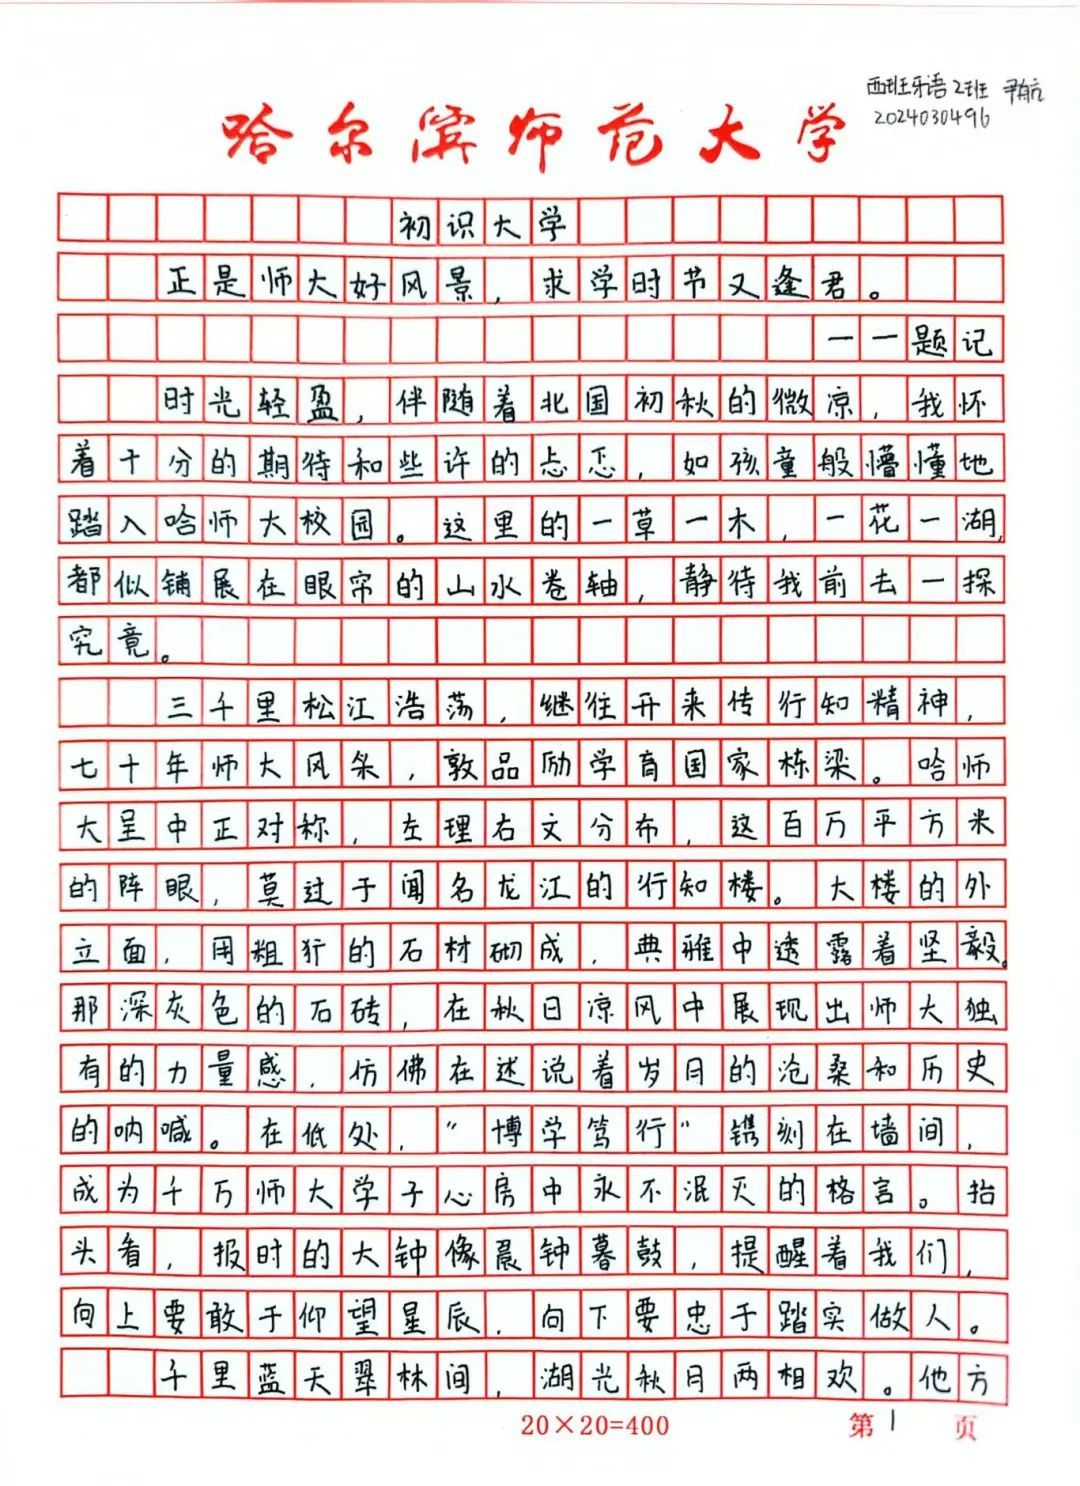 西班牙语2班 尹航
2024030496
哈尔滨师范大学
初识大学
正是师大好风景，求学时节又逢君。
——题记
时光轻盈，伴随着北国初秋的微凉，我怀
着十分的期待和些许的忐忑，如孩童般懵懂地
踏入哈师大校园。这里的一草一木，一花一湖，
都似铺展在眼帘的山水卷轴，静待我前去一探
究竟。
三千里松江浩荡，继往开来传行知精神，
七十年师大风条，敦品励学育国家栋梁。哈师
大呈中正对称，左理右文分布，这百万平方米
的阵眼，莫过于闻名龙江的行知楼。大楼的外
立面，用粗犷的石材砌成，典雅中透露着坚毅。
那深灰色的石砖，在秋日凉风中展现出师大独
有的力量感，仿佛在述说着岁月的沧桑和历史
的呐喊。在低处，“博学笃行”镌刻在墙间，
成为千万师大学子心房中永不泯灭的格言。抬
头看，报时的大钟像晨钟暮鼓，提醒着我们，
向上要敢于仰望星辰，向下要忠于踏实做人。
千里蓝天翠林间，湖光秋月两相欢。他方
20×20=400
第1页